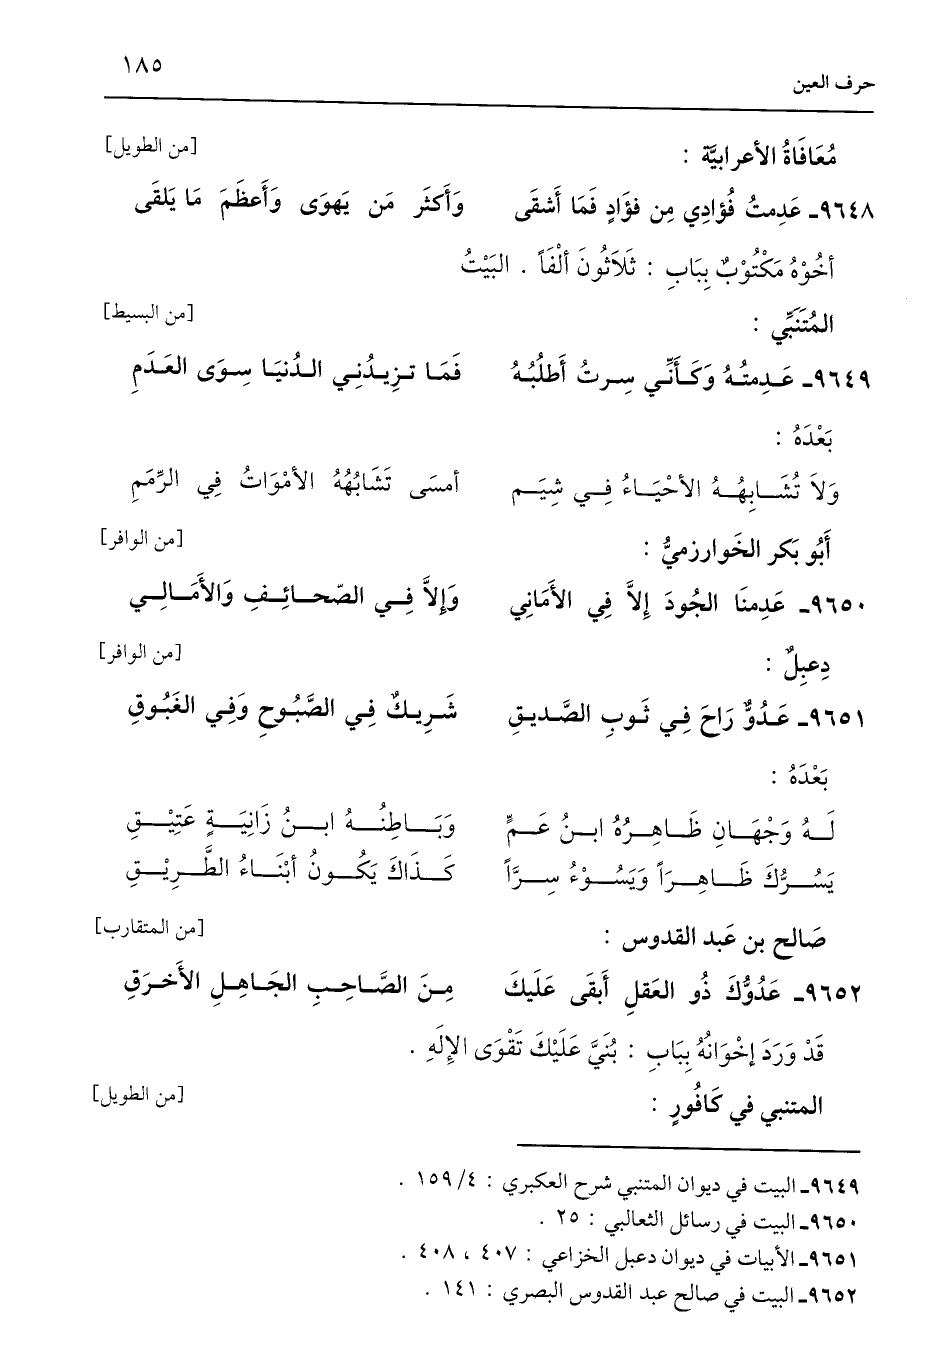 ١٨٥
حرف العين
مُعَافَاةُ الأعرابيَّة : [من الطويل]
٩٦٤٨ـ عَدِمتُ فُؤادِي مِن فؤَادٍ فَمَا أَشقَى وَأَكثَر مَن يَهوَى وَأَعظَمَ مَا يَلقَى
أخُوْهُ مَكْتُوْبٌ بِبَابِ : ثَلَاثُونَ ألْفَاً . البَيْتُ
المُتَنَبِّي : [من البسيط]
٩٦٤٩ـ عَـدِمتُـهُ وَكَـأنَّـي سِـرتُ أَطلُبُـهُ فَمَـا تـزِيـدُنِـي الـدُنيَـا سِـوَى العَـدَمِ
بَعْدَهُ :
وَلاَ تُشَــابِهُــهُ الأحْيَــاءُ فِــي شِيَــمٍ أمسَى تَشَابُهُهُ الأمْوَاتُ فِي الرِّمَمِ
أَبُو بَكر الخَوارزميُّ : [من الوافر]
٩٦٥٠ـ عَدِمنَا الجُودَ إلاَّ فِي الأمَانِي وَإلاَّ فِـي الصّحـائِـفِ وَالأَمَـالِـي
دِعبِلٌ : [من الوافر]
٩٦٥١ـ عَـدُوٌّ رَاحَ فِـي ثَوبِ الصَّدِيقِ شَـرِيـكٌ فِـي الصَّبُـوحِ وَفِـي الغَبُـوقِ
بَعْدَهُ :
لَــهُ وَجْهَــانِ ظَــاهِــرُهُ ابــنُ عَــمٍّ وَبَــاطِنُــهُ ابــنُ زَانِيَــةٍ عَتِيْــقِ
يَسُــرُّكَ ظَــاهِــرَاً وَيَسُــوْءُ سِــرَّاً كَــذَاكَ يَكُــونُ أبْنَــاءُ الطَّــرِيْــقِ
صَالح بن عَبد القدوس : [من المتقارب]
٩٦٥٢ـ عَدُوُّكَ ذُو العَقلِ أَبقَى عَلَيكَ مِـنَ الصَّـاحِـبِ الجَـاهِـلِ الأَخـرَقِ
قَدْ وَرَدَ إخْوَانُهُ بِبَابِ : بُنَيَّ عَلَيْكَ تَقْوَى الإلَهِ .
المتنبي في كَافُورٍ : [من الطويل]
٩٦٤٩ـ البيت في ديوان المتنبي شرح العكبري : ٤/ ١٥٩ .
٩٦٥٠ـ البيت في رسائل الثعالبي : ٢٥ .
٩٦٥١ـ الأبيات في ديوان دعبل الخزاعي : ٤٠٧ ، ٤٠٨ .
٩٦٥٢ـ البيت في صالح عبد القدوس البصري : ١٤١ .